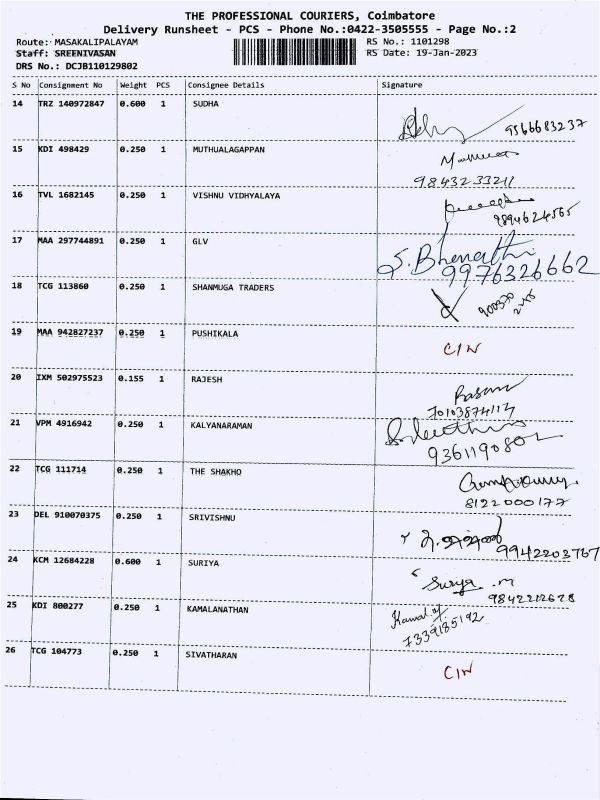 THE PROFESSIONAL COURIERS, Coimbatore
Delivery Runsheet - PCS - Phone No.:0422-3505555 - Page No.:2
Route: MASAKALIPALAYAM RS No.: 1101298
Staff: SREENIVASAN RS Date: 19-Jan-2023
DRS No.: DCJB110129802
S No Consignment No Weight PCS Consignee Details Signature
14 TRZ 140972847 0.600 1 SUDHA
9566683237
15 KDI 498429 0.250 1 MUTHUALAGAPPAN
9843233211
16 TVL 1682145 0.250 1 VISHNU VIDHYALAYA
9894624565
17 MAA 297744891 0.250 1 GLV
S. Bharathi
9976326662
18 TCG 113860 0.250 1 SHANMUGA TRADERS
19 MAA 942827237 0.250 1 PUSHIKALA
CIN
20 IXM 502975523 0.155 1 RAJESH
21 VPM 4916942 0.250 1 KALYANARAMAN
9361190802
22 TCG 111714 0.250 1 THE SHAKHO
8122000177
23 DEL 910070375 0.250 1 SRIVISHNU
9942203767
24 KCM 12684228 0.600 1 SURIYA
Surya .m
9842212628
25 KDI 800277 0.250 1 KAMALANATHAN
Kamal.
7339185192
26 TCG 104773 0.250 1 SIVATHARAN
CIN